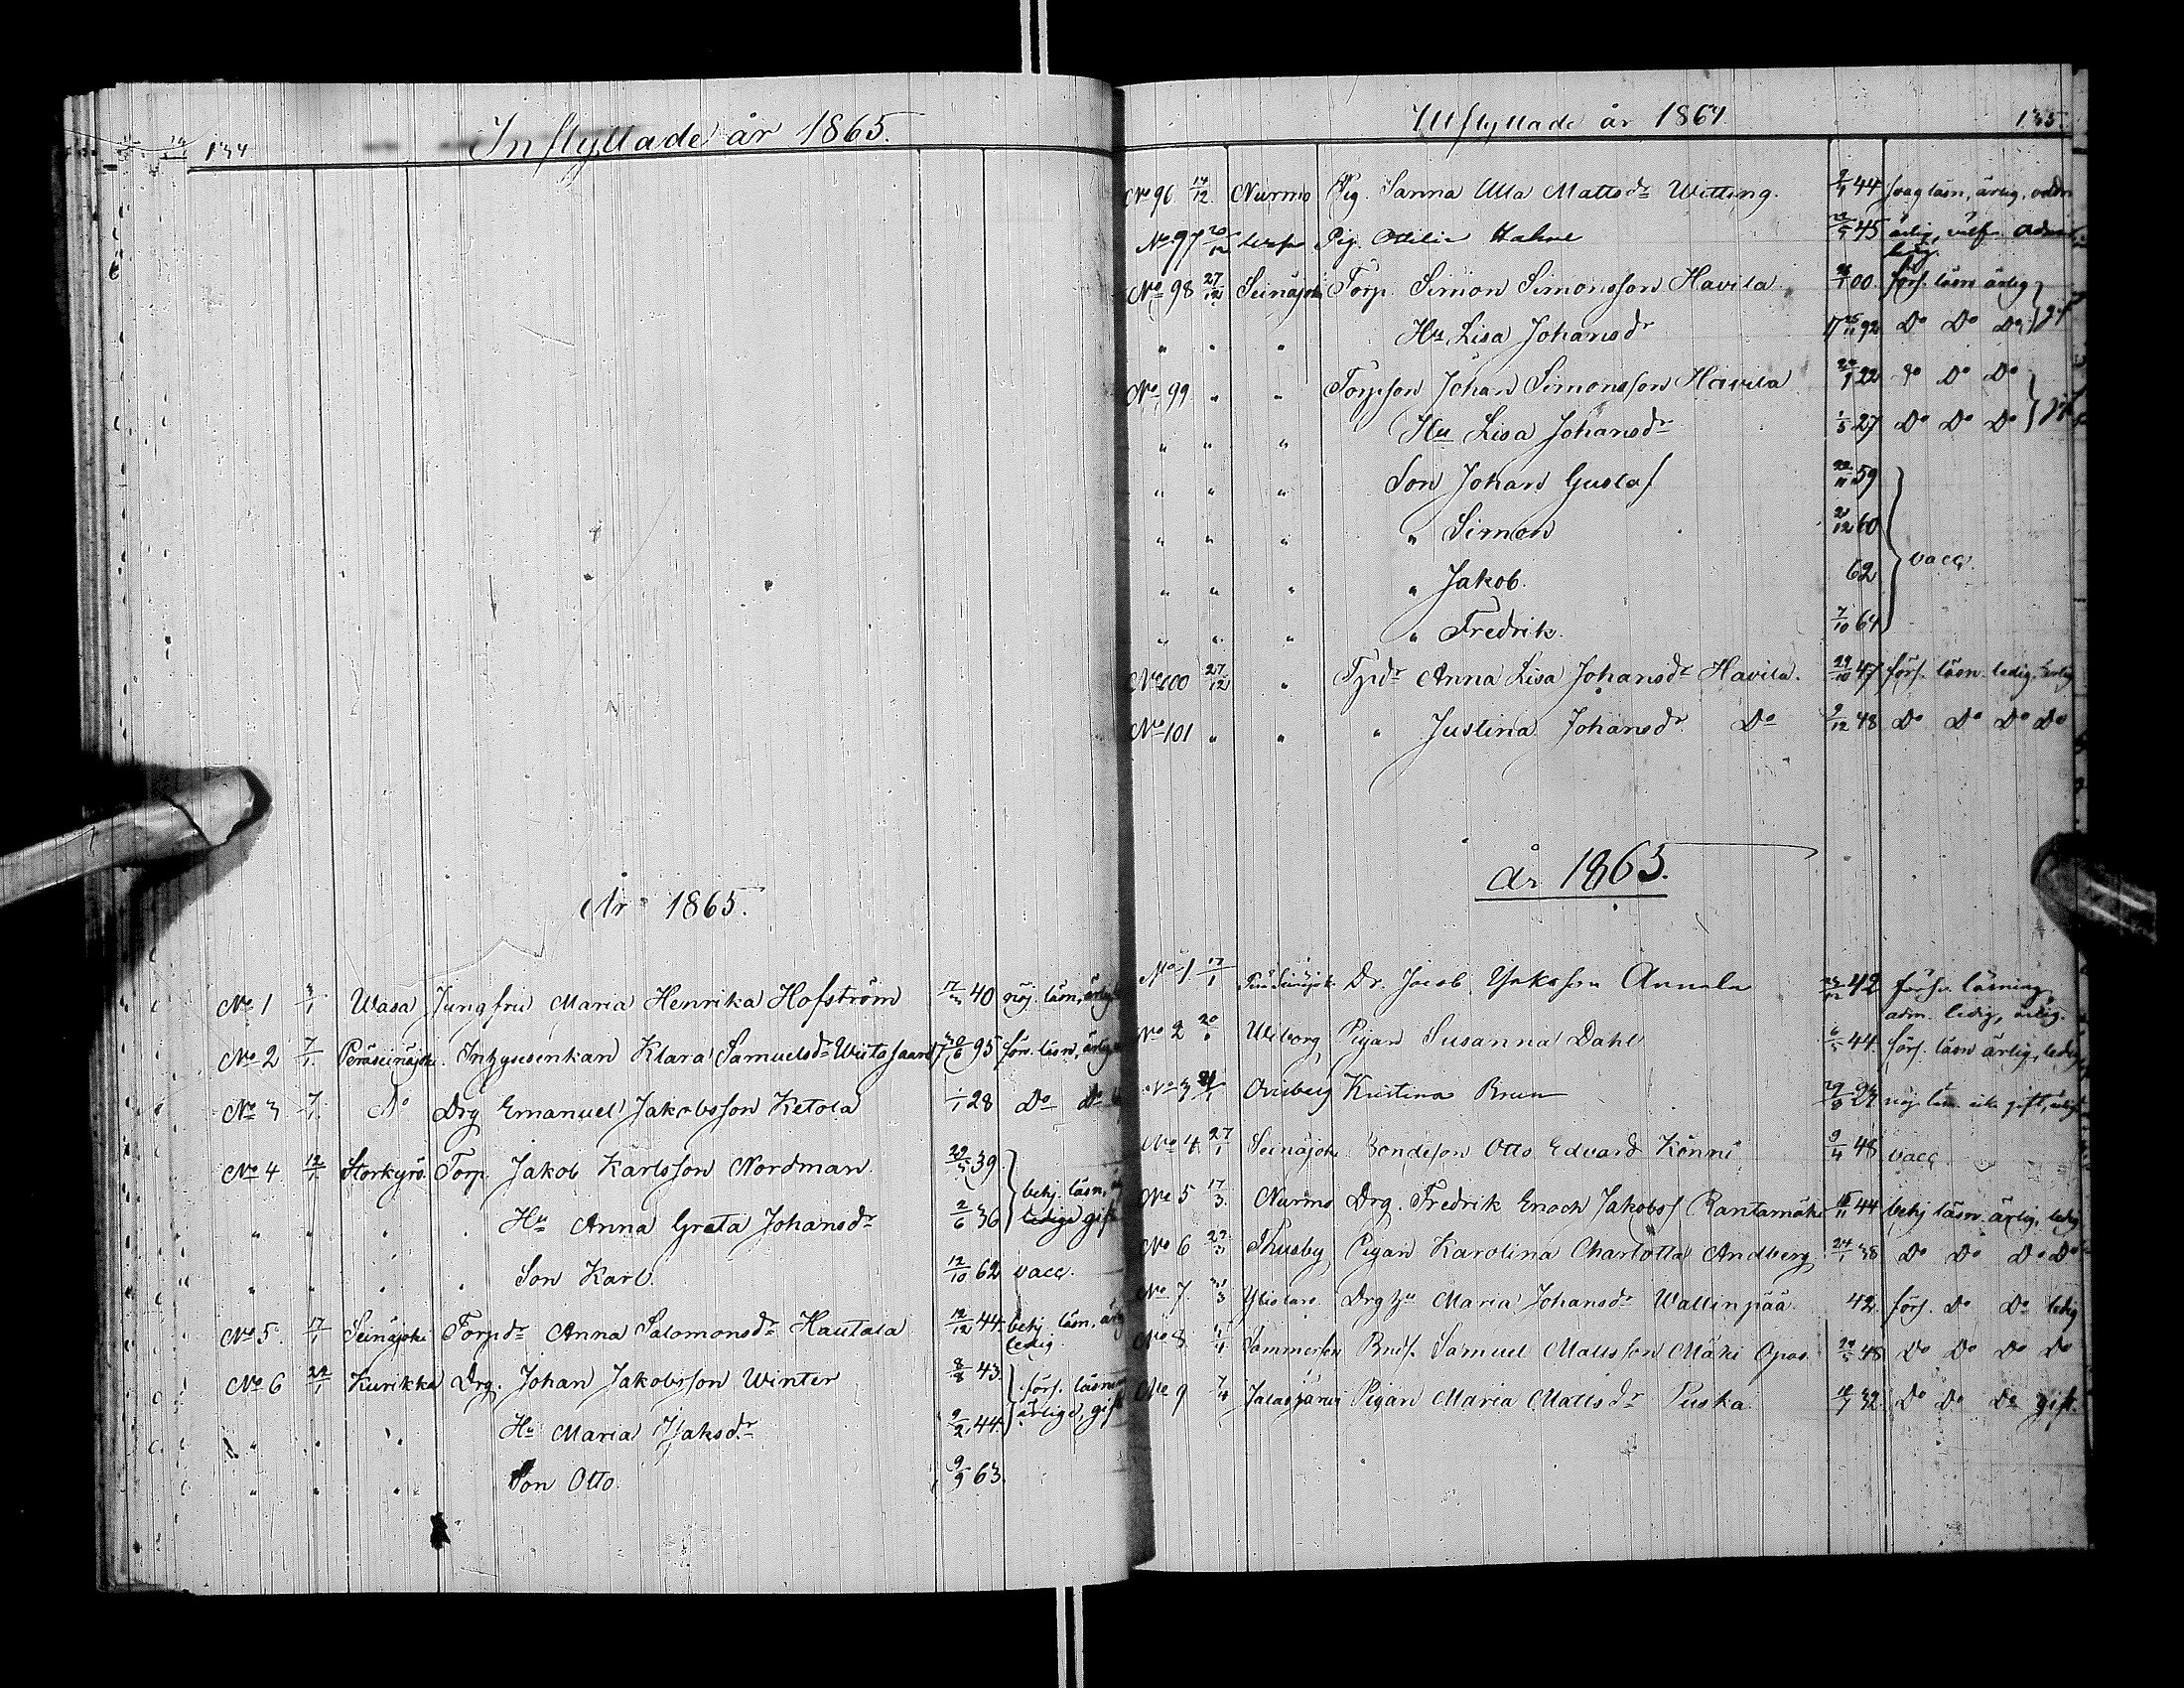 134
Inflyttade år 1865.
År 1865.
No 1 3/1 Wasa Jungfru Maria Henrika Hofström 40 nöj. läsn, ärlig
No 2 7/1 Peräseinäjoki Klara Samuelsdr 30/6 95 förs. läsn, ärlig
No 3 7/1 Do Drg Emanuel Jakobsson Ketola 1/1 28 Do Do
No 4 12/1 Storkyro Torp. Jakob Karlsson Nordman 39
" " " Hu Anna Greta Johansdr 2/6 36 behj. läsn, ledige gift
" " " Son Karl 12/10 62 vacc.
No 5 17/1 Seinäjoki Torpdr Anna Salomonsdr Hautala 12/12 44 behj läsn, ärlig
ledig
No 6 22/1 Kurikka Drg. Johan Jakobsson Winter 8/8 43 förs. läsn
" " " Hu Maria Isaksdr 9/2 44 ärlige, gift
" " " Son Otto 9/9 63
Utflyttade år 1864
135.
No 96 14/12 Nurmo Pig. Sanna Ulla Mattsdr Witting. 44 svag läsn, ärlig, adm
No 97 20/12 Pig. Otilia 45 ärlig, välfr. adm
ledig
No 98 27/12 Seinäjoki Torp. Simon Simonsson Havila 00 förs. läsn ärlig
" " " Hu Lisa Johansdr 92 Do Do Do gift
No 99 " " Torpson Johan Simonsson Havila 22 Do Do Do
" " " Hu Lisa Johansdr 1/5 27 Do Do Do gift
" " " Son Johan Gustaf 22/11 59
" " " " Simon 2/12 60
" " " " Jakob 62 vacc.
" " " " Fredrik 7/10 64
No 100 27/12 " Tpdr Anna Lisa Johansdr Havila. 29/10 47 förs. läsn. ledig, ärlig
No 101 " " " Justina Johansdr Do 9/12 48 Do Do Do Do
År 1865.
No 1 17/1 Dr. Jacob Isaksson Annala 42 förse. läsning
adm. ledig, ärlig.
No 2 20/1 Wiborg Pigan Susanna Dahl 44 förs. läsn ärlig, ledig
No 3 Kristina Brun 29/3 24 gift, ärlig
No 4 27/1 Seinäjoki Bondeson Otto Edvard Könni 9/4 48 vacc.
No 5 17/3 Nurmo Drg. Fredrik Enoch Jakobs Rantamäki 44 behj läsn ärlig, ledig
No 6 22/3 Thusby Pigan Karolina Charlotta Andberg 24/1 38 Do Do Do Do
No 7. Ylistaro Drg hu Maria Johansdr Wallinpää 42. förs. Do Do ledig
No 8 Samuel Mattsson Mäki Opas 48 Do Do Do Do
No 9 7/4 Jalasjärvi Pigan Maria Mattsdr Puska 32 Do Do Do gift